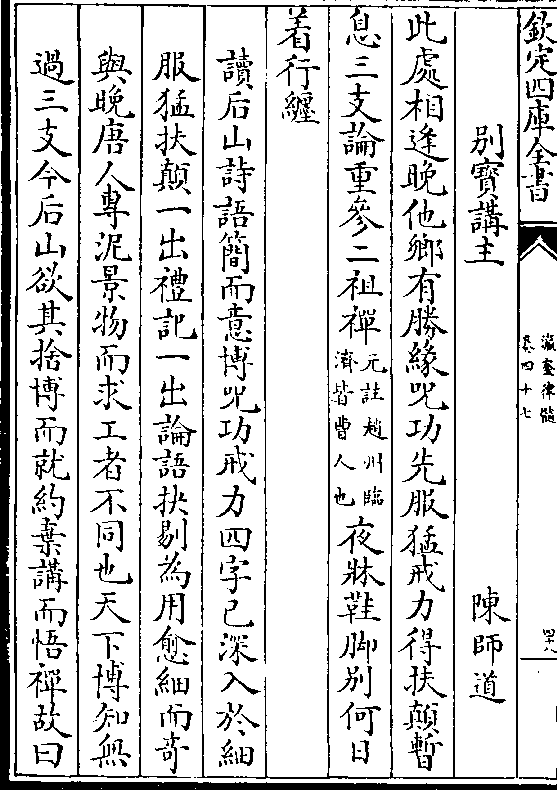 欽定四庫全書
瀛奎律髓
卷四十七
四八
別寶講主　陳師道
此處相逢晚他鄉有勝緣咒功先服猛戒力得扶顛暫
息三支論重參二祖禪元註趙州臨濟皆曹人也夜牀鞋脚別何日
着行纏
讀后山詩語簡而意博咒功戒力四字已深入於細
服猛扶顛一出禮記一出論語抉剔為用愈細而奇
與晚唐人專泥景物而求工者不同也天下博知無
過三支今后山欲其捨博而就約棄講而悟禪故曰